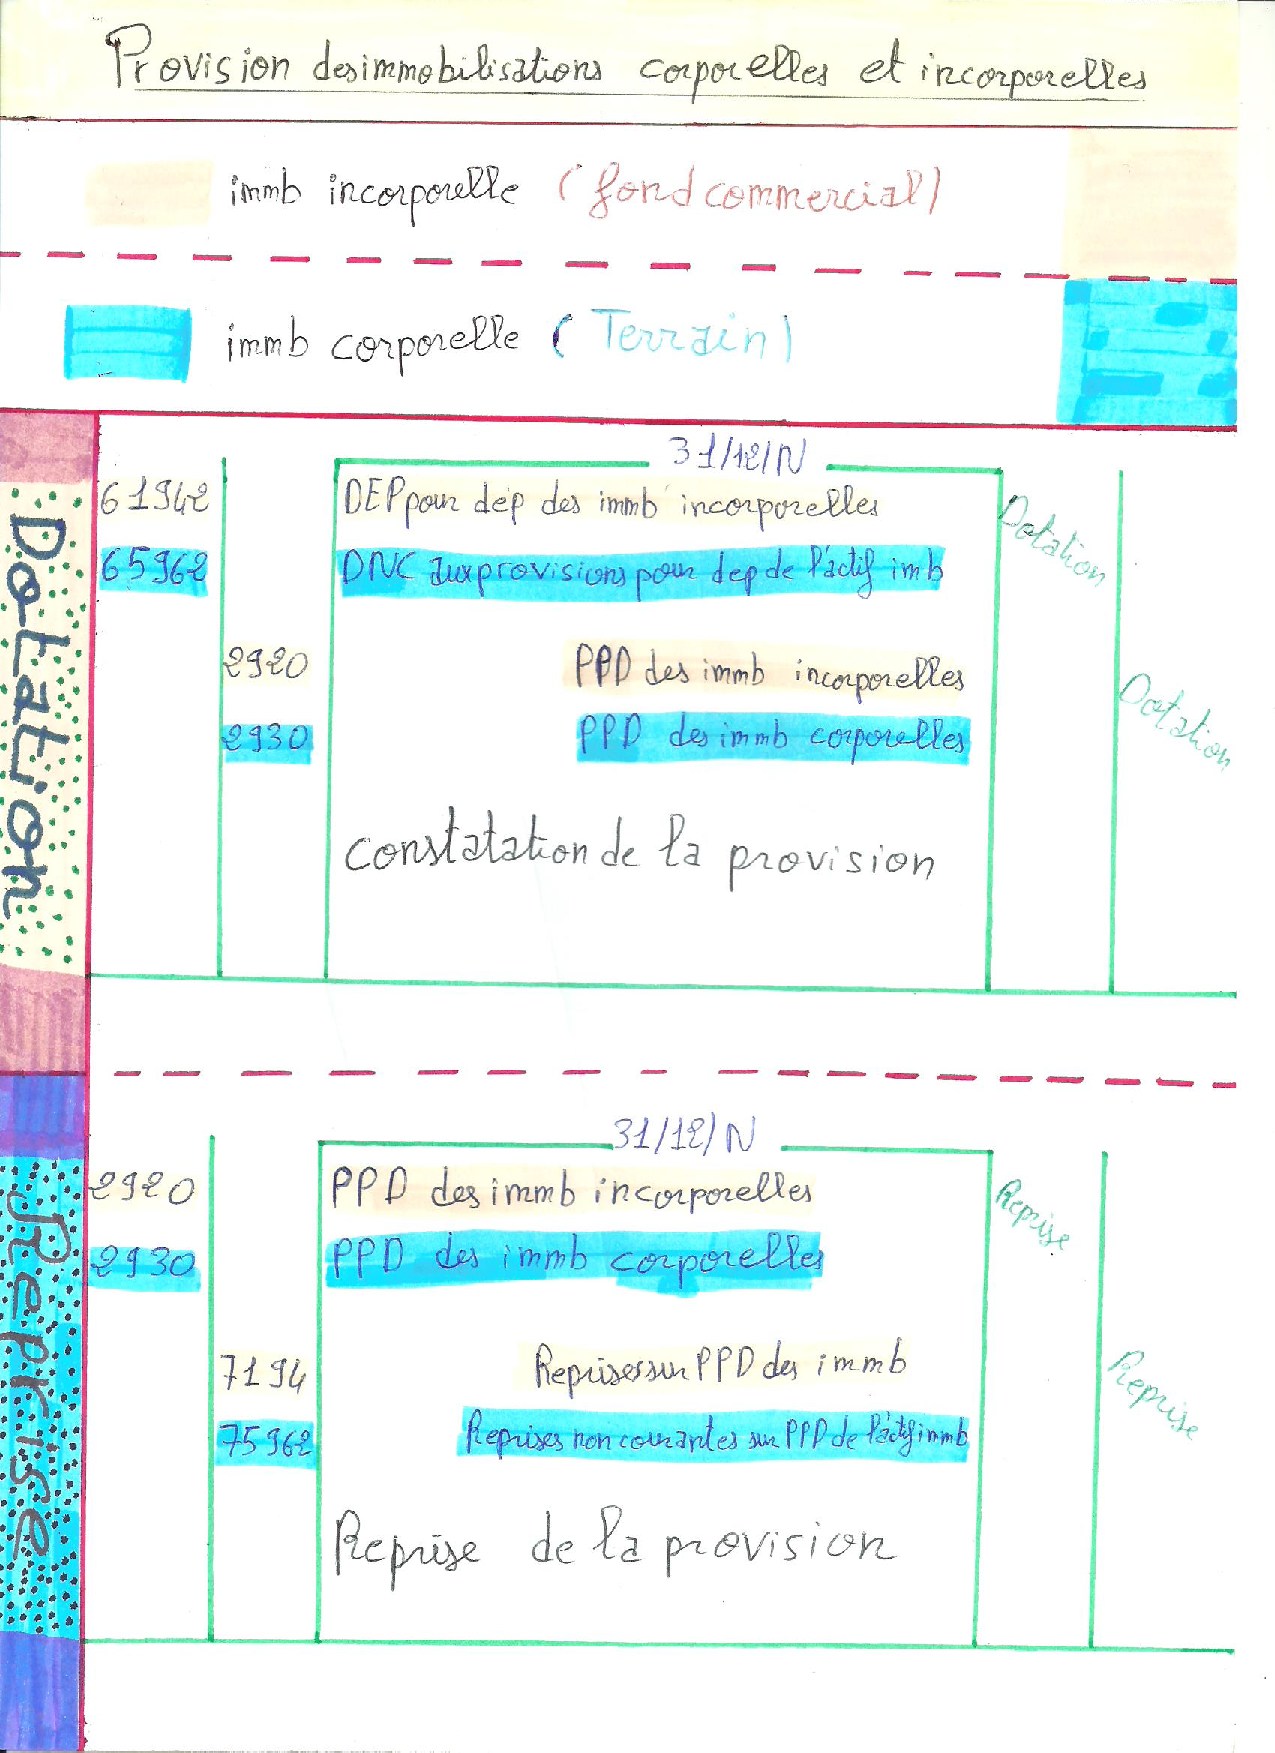 Provision des immobilisations corporelles et incorporelles
immb incorporelle (fond commercial)
immb corporelle (Terrain)
Dotation
31/12/N
61942 DEP pour dep des immb incorporelles Dotation
65962 DNC aux provisions pour dep de l'actif imb
2920 PPD des immb incorporelles Dotation
2930 PPD des immb corporelles
constatation de la provision
Reprise
31/12/N
2920 PPD des immb incorporelles Reprise
2930 PPD des immb corporelles
7194 Reprises sur PPD des immb Reprise
75962 Reprises non courantes sur PPD de l'actif immb
Reprise de la provision